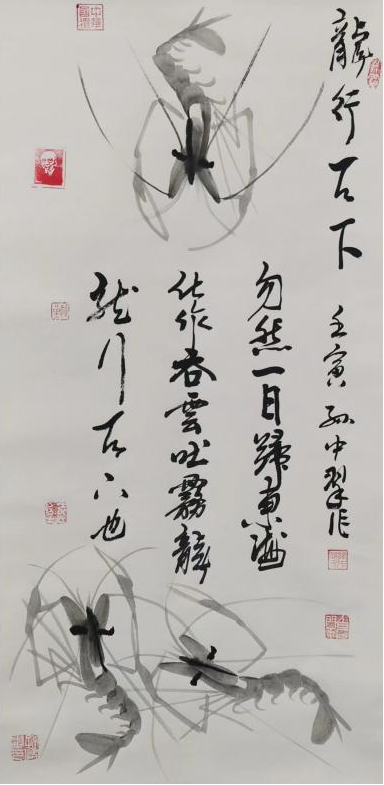 龍行天下
壬寅 孙中翠作
忽然一日歸東海
化作吞雲吐霧龍
龙行天下也